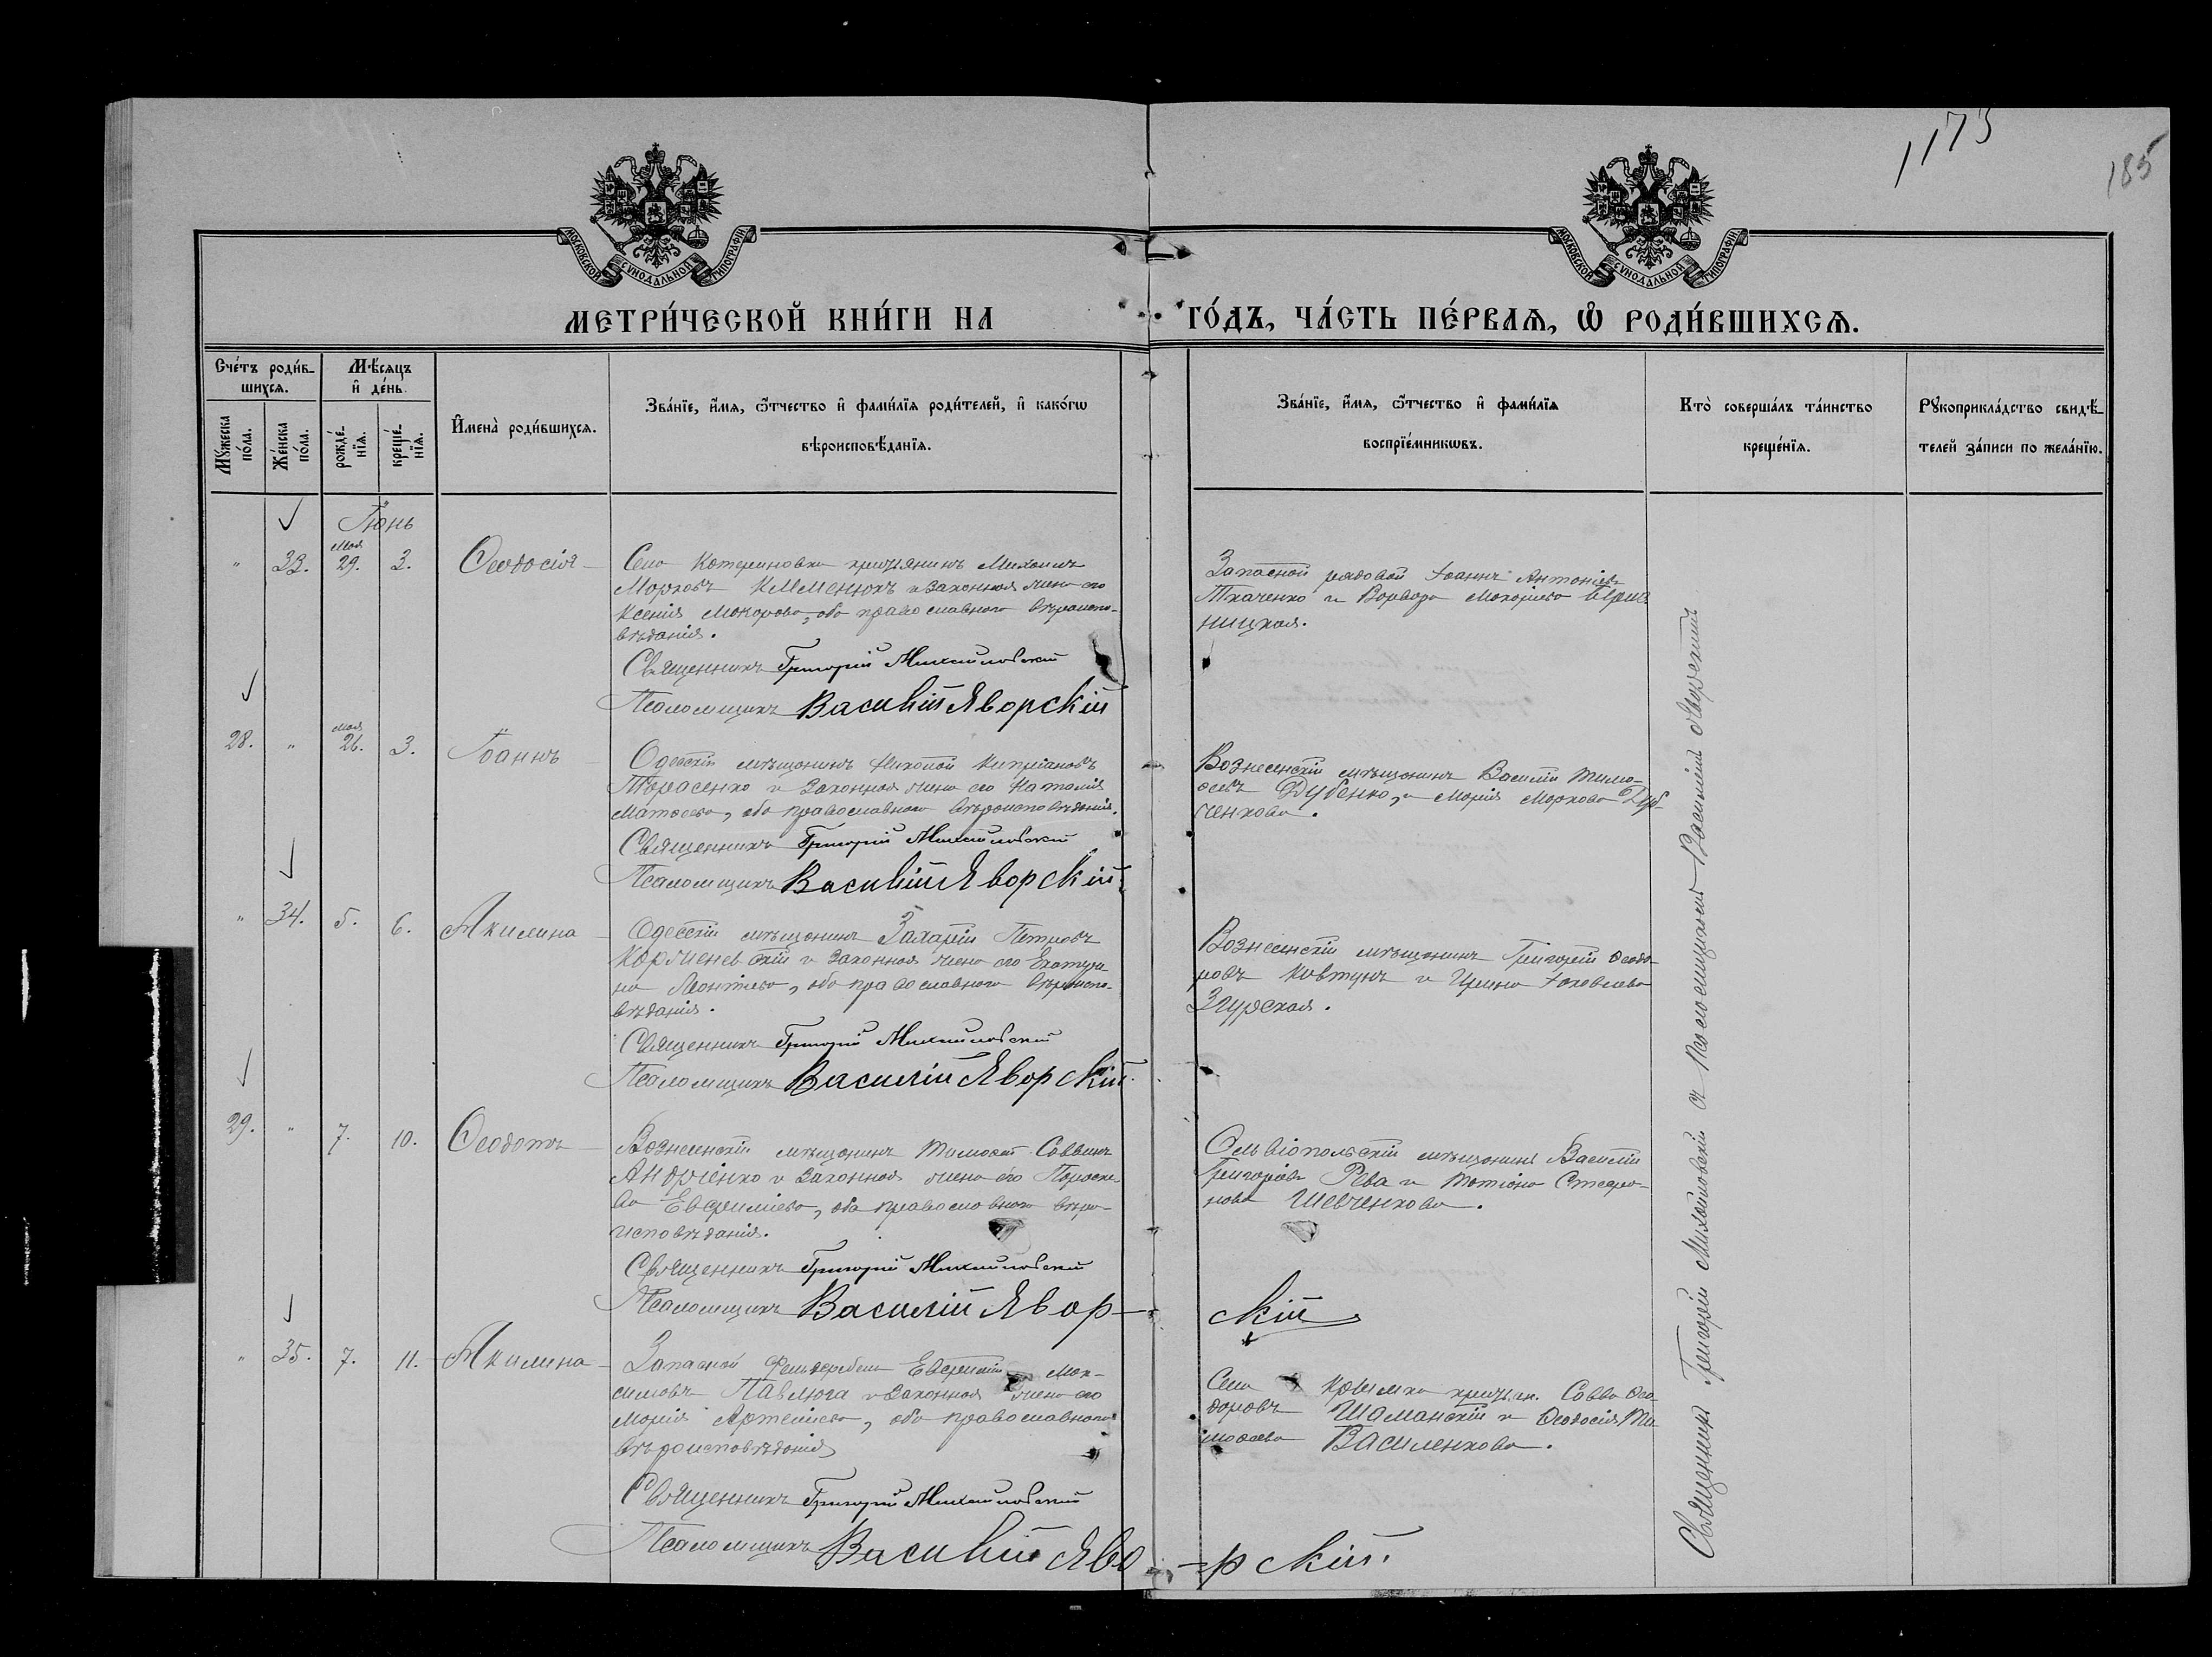 1173
185
МОСКОВСКОЙ СУНОДАЛЬНОЙ ТИПОГРАФІИ
МОСКОВСКОЙ СУНОДАЛЬНОЙ ТИПОГРАФІИ
МЕТРИ́ЧЕСКОЙ КНИ́ГИ НА ГО́ДЪ, ЧА́СТЬ ПЕ́РВАѦ, Ѡ РОДИ́ВШИХСѦ.
Сче́тъ роди́в-
шихсѧ.
Мѣ́сяцъ
и҆ де́нь.
Мꙋжеска
по́ла.
Же́нска
по́ла.
рожде́-
нїѧ.
креще́-
нїѧ.
И҆мена̀ роди́вшихсѧ.
Зва́нїе, и҆́мѧ, ѻ҆́тчество и҆ фами́лїѧ роди́телей, и҆ како́гѡ
вѣроисповѣ́данїѧ.
Зва́нїе, и҆́мѧ, ѻ҆́тчество и҆ фами́лїѧ
воспрїе́мникѡвъ.
Кто̀ соверша́лъ та́инство
креще́нїѧ.
Рꙋкоприкла́дство свидѣ́-
телей за́писи по жела́нїю.
Іюнь
" 33. Мая 29. 3. Ѳеодосія
Села Катериновки крестьянинъ Михаилъ
Марковъ Клименюкъ и законная жена его
Ксенія Макарова, оба православнаго вѣроиспо-
вѣданія.
Священникъ Григорій Михайловскій
Псаломщикъ Василій Яворскій
Запасной рядовой Іоаннъ Антоніевъ
Ткаченко и Варвара Макаріева
ницкая.
28. " Мая 26. 3. Іоаннъ
Одесскій мѣщанинъ Николай Кипріановъ
Тарасенко и законная жена его Наталія
Матѳеева, оба православнаго вѣроисповѣданія.
Священникъ Григорій Михайловскій
Псаломщикъ Василій Яворскій
Вознесенскій мѣщанинъ Василій Тимо-
ѳеевъ Дубенко, и Марія Маркова
ченкова.
" 34. 5. 6. Акилина
Одесскій мѣщанинъ Захарій Петровъ
и законная жена его Екатери-
на Леонтіева, оба православнаго вѣроиспо-
вѣданія.
Священникъ Григорій Михайловскій
Псаломщикъ Василій Яворскій.
Вознесенскій мѣщанинъ Григорій Ѳеодо-
ровъ Ковтунъ и Ирина Іаковлева
Згурская.
29. " 7. 10. Ѳеодотъ
Вознесенскій мѣщанинъ Тимоѳей Саввинъ
Андріенко и законная жена его Параске-
ва Евфиміева, оба православнаго вѣро-
исповѣданія.
Священникъ Григорій Михайловскій
Псаломщикъ Василій Явор-
скій
Ольвіопольскій мѣщанинъ Василій
Григоріевъ Рева и Татіана Стефа-
нова Шевченкова.
" 35. 7. 11. Акилина
Запасной Фельдфебель Евфимій Мак-
симовъ Павлюга и законная жена его
Марія Артеміева, оба православнаго
вѣроисповѣданія
Священникъ Григорій Михайловскій
Псаломщикъ Василій Яво-
-рскій.
Села Крымки крестьян. Савва Ѳео-
доровъ Шаманскій и Ѳеодосія Ти-
моѳеева Василенкова.
Священникъ Григорій Михайловскій съ Псаломщикомъ Василіемъ Яворскимъ